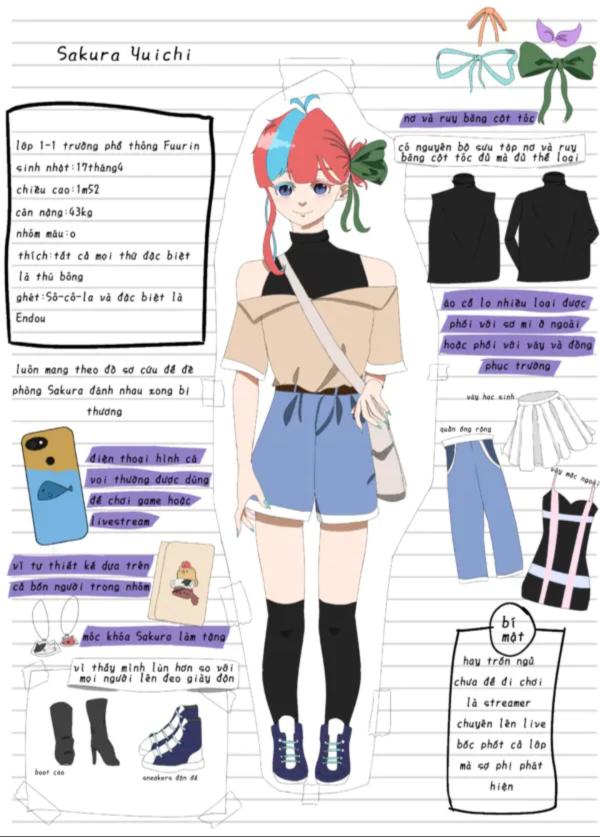 Sakura Yuichi
lớp 1-1 trường phổ thông Fuurin
sinh nhật:17tháng4
chiều cao:1m52
cân nặng:43kg
nhóm máu:o
thích:tất cả mọi thứ đặc biệt
là thú bông
ghét:Sô-cô-la và đặc biệt là
Endou
luôn mang theo đồ sơ cứu để đề
phòng Sakura đánh nhau xong bị
thương
điện thoại hình cá
voi thường được dùng
để chơi game hoặc
livestream
ví tự thiết kế dựa trên
cả bốn người trong nhóm
móc khóa Sakura làm tặng
vì thấy mình lùn hơn so với
mọi người lên đeo giày độn
boot cao
sneakers độn đế
nơ và ruy băng cột tóc
có nguyên bộ sưu tập nơ và ruy
băng cột tóc đủ mà đủ thể loại
áo cổ lọ nhiều loại được
phối với sơ mi ở ngoài
hoặc phối với váy và đồng
phục trường
váy học sinh
quần ống rộng
váy mặc ngoài
bí
mật
hay trốn ngủ
chưa để đi chơi
là streamer
chuyên lên live
bốc phốt cả lớp
mà sợ phị phát
hiện